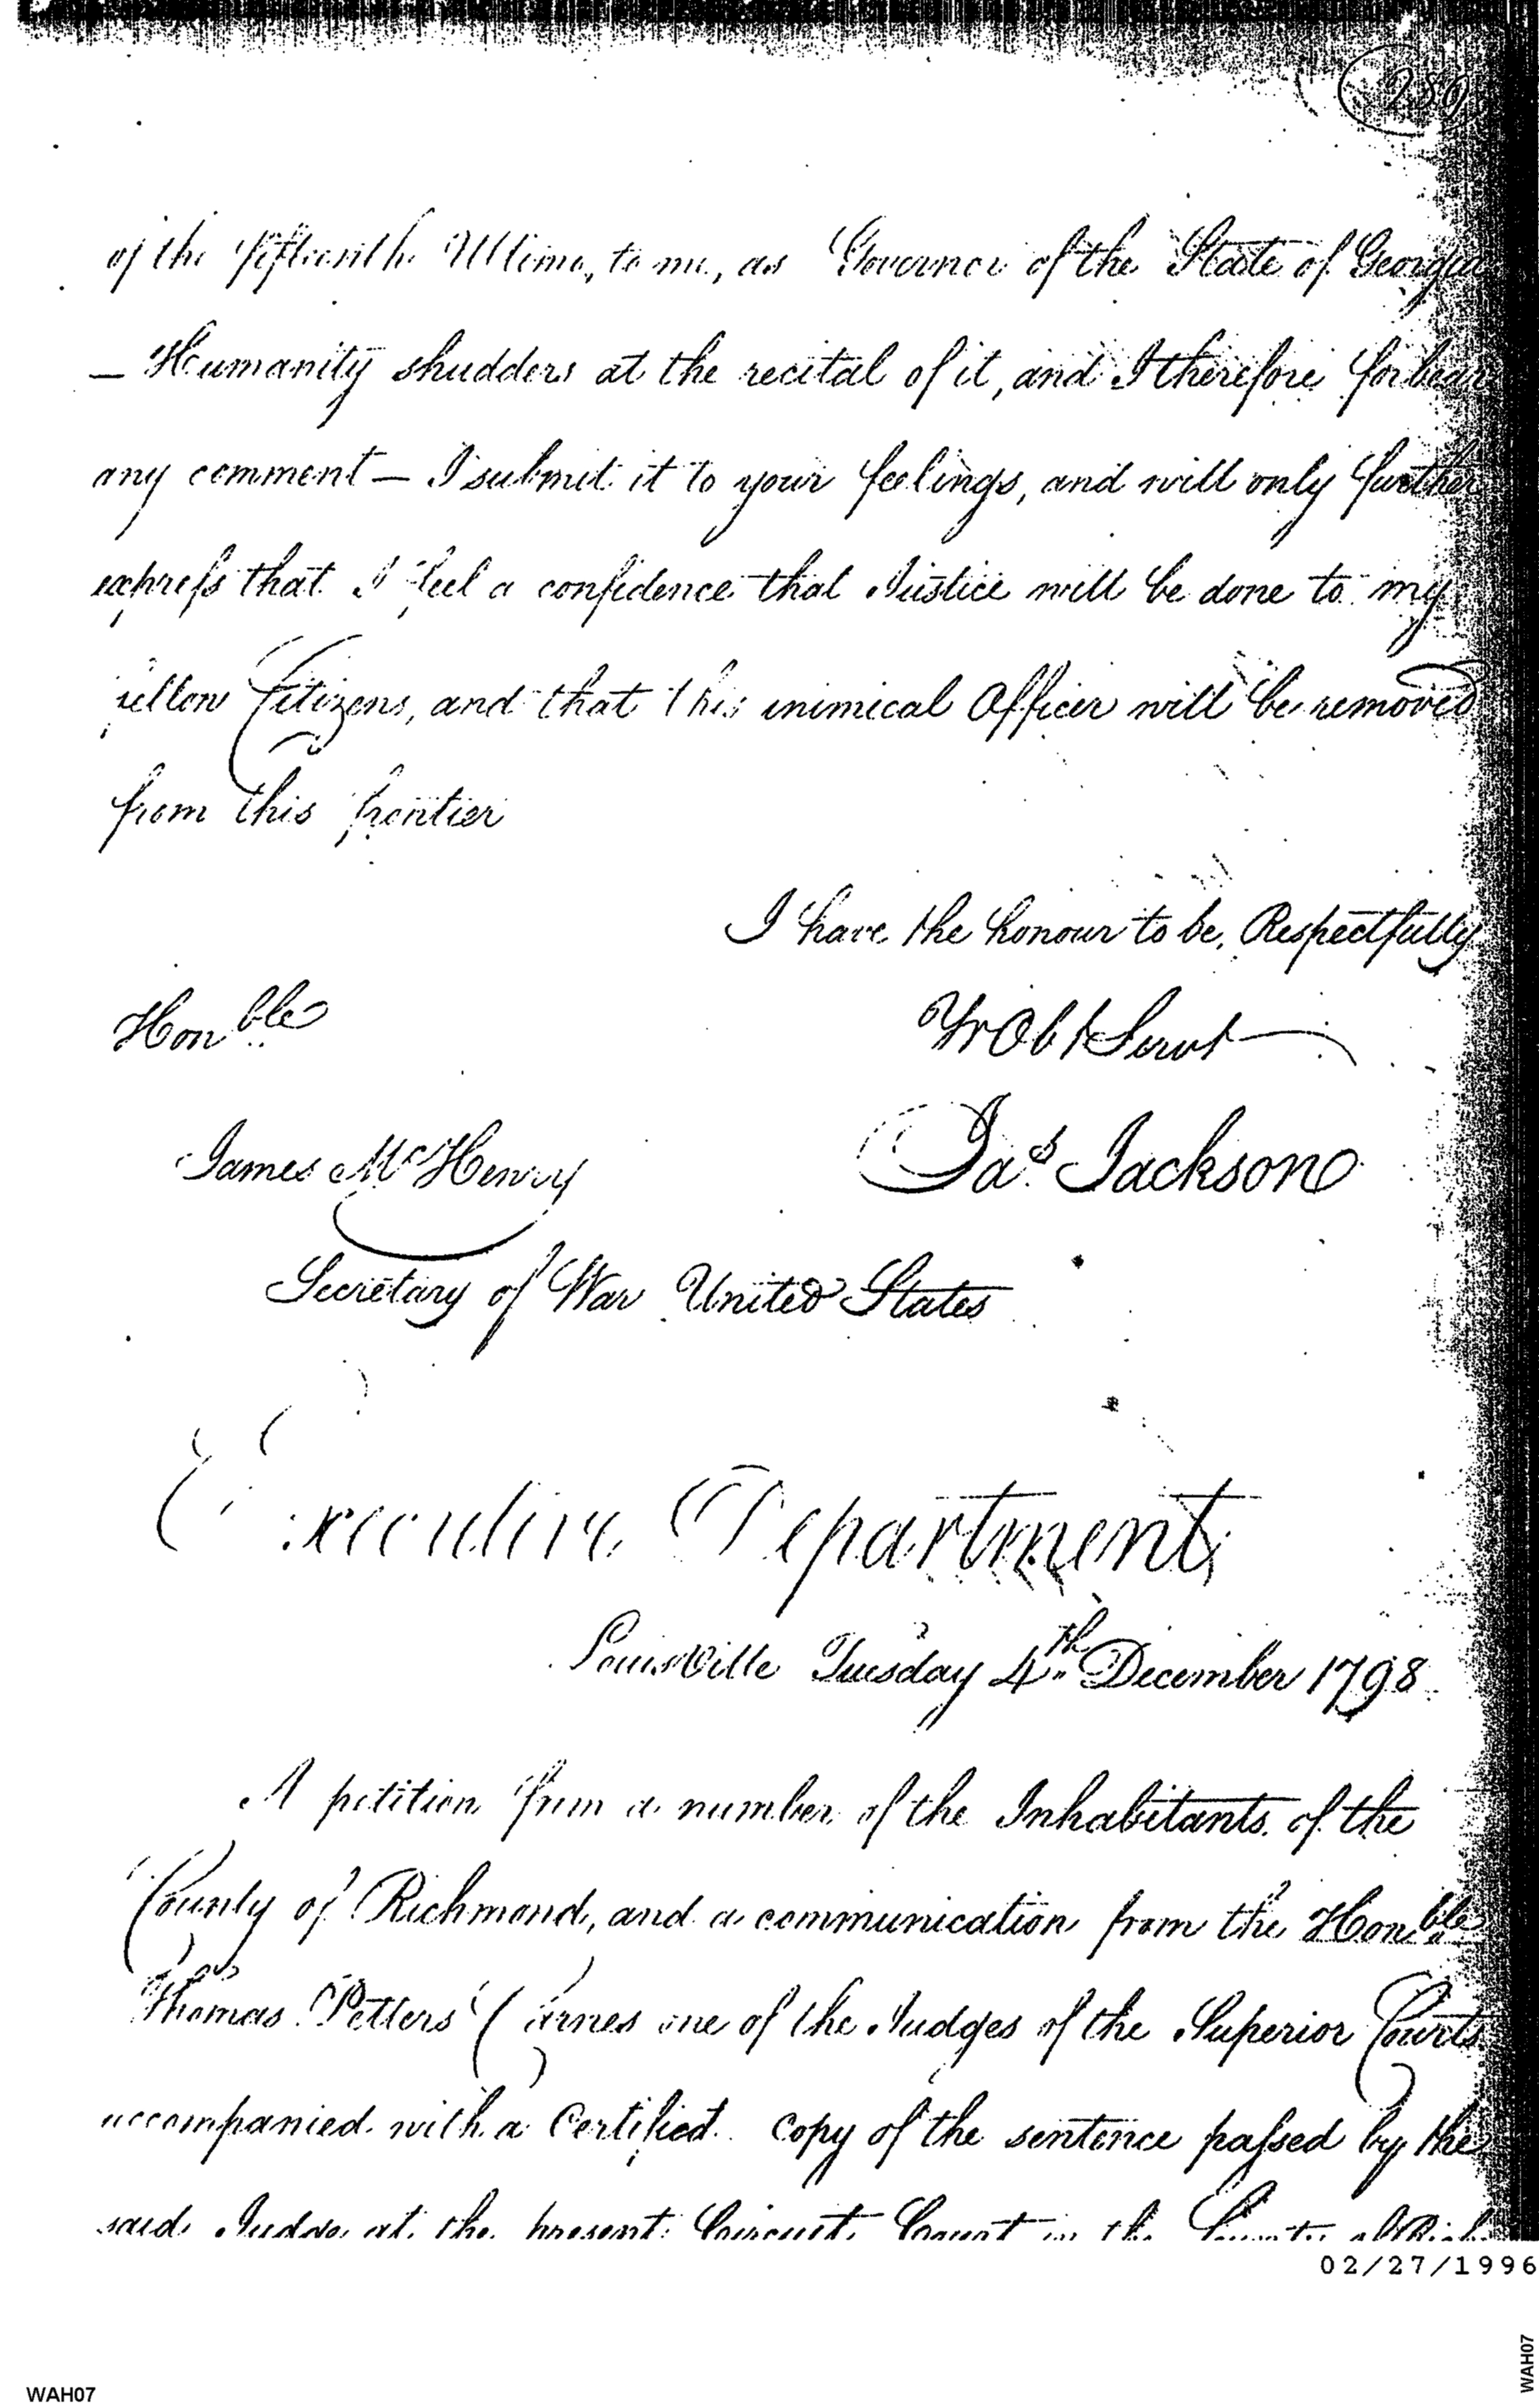 289
of the fifteenth Ultimo, to me, as Governor of the State of Georgia
— Humanity shudders at the recital of it, and I therefore forbear
any comment — I submit it to your feelings, and will only further
express that I feel a confidence that Justice will be done to my
fellow Citizens, and that this inimical Officer will be removed
from this frontier
I have the honour to be, Respectfully
Honble
Yr Obt Servt
James McHenry
Jas. Jackson
Secretary of War United States
Executive Department
Louisville Tuesday 4th December 1798
A petition from a number of the Inhabitants of the
County of Richmond, and a communication from the Honble
Thomas Petters Carnes one of the Judges of the Superior Courts
accompanied with a Certified copy of the sentence passed by the
said Judge at the present Circuit Court in the County of
02/27/1996
WAH07
WAH07